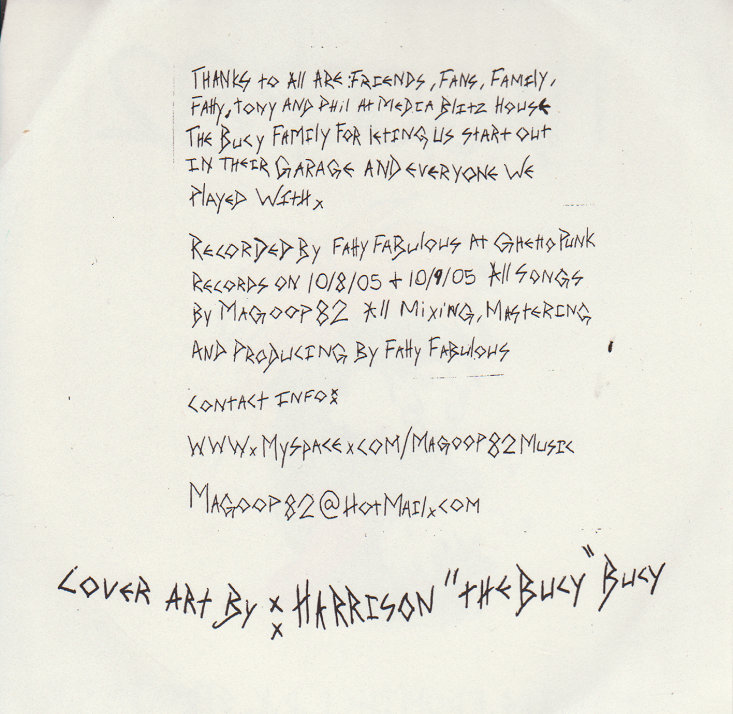 THANKS to All ARE:FRIENDS, FANS, FAMILY,
FAtty, TONY AND PHil At MEDIA BLITZ HOUSE
THE BUCY FAMILY FOR lETING US START OUT
IN THEIR GARAGE AND EVERYONE WE
PLAYED WITHx
RECORDED BY FAtty FABulous At GHETTO PUNK
RECORDS ON 10/8/05 + 10/9/05 All SONGS
BY MAGOOP82 All MixiNG, MASTERING
AND PRODUCING BY FAtty FABulous
CONTACT INFO:
WWWxMySPACExCOM/MAGOOP82MUSIC
MAGOOP82@HOTMAILxCOM
COVER ART BY : HARRISON "THE BUCY" BUCY